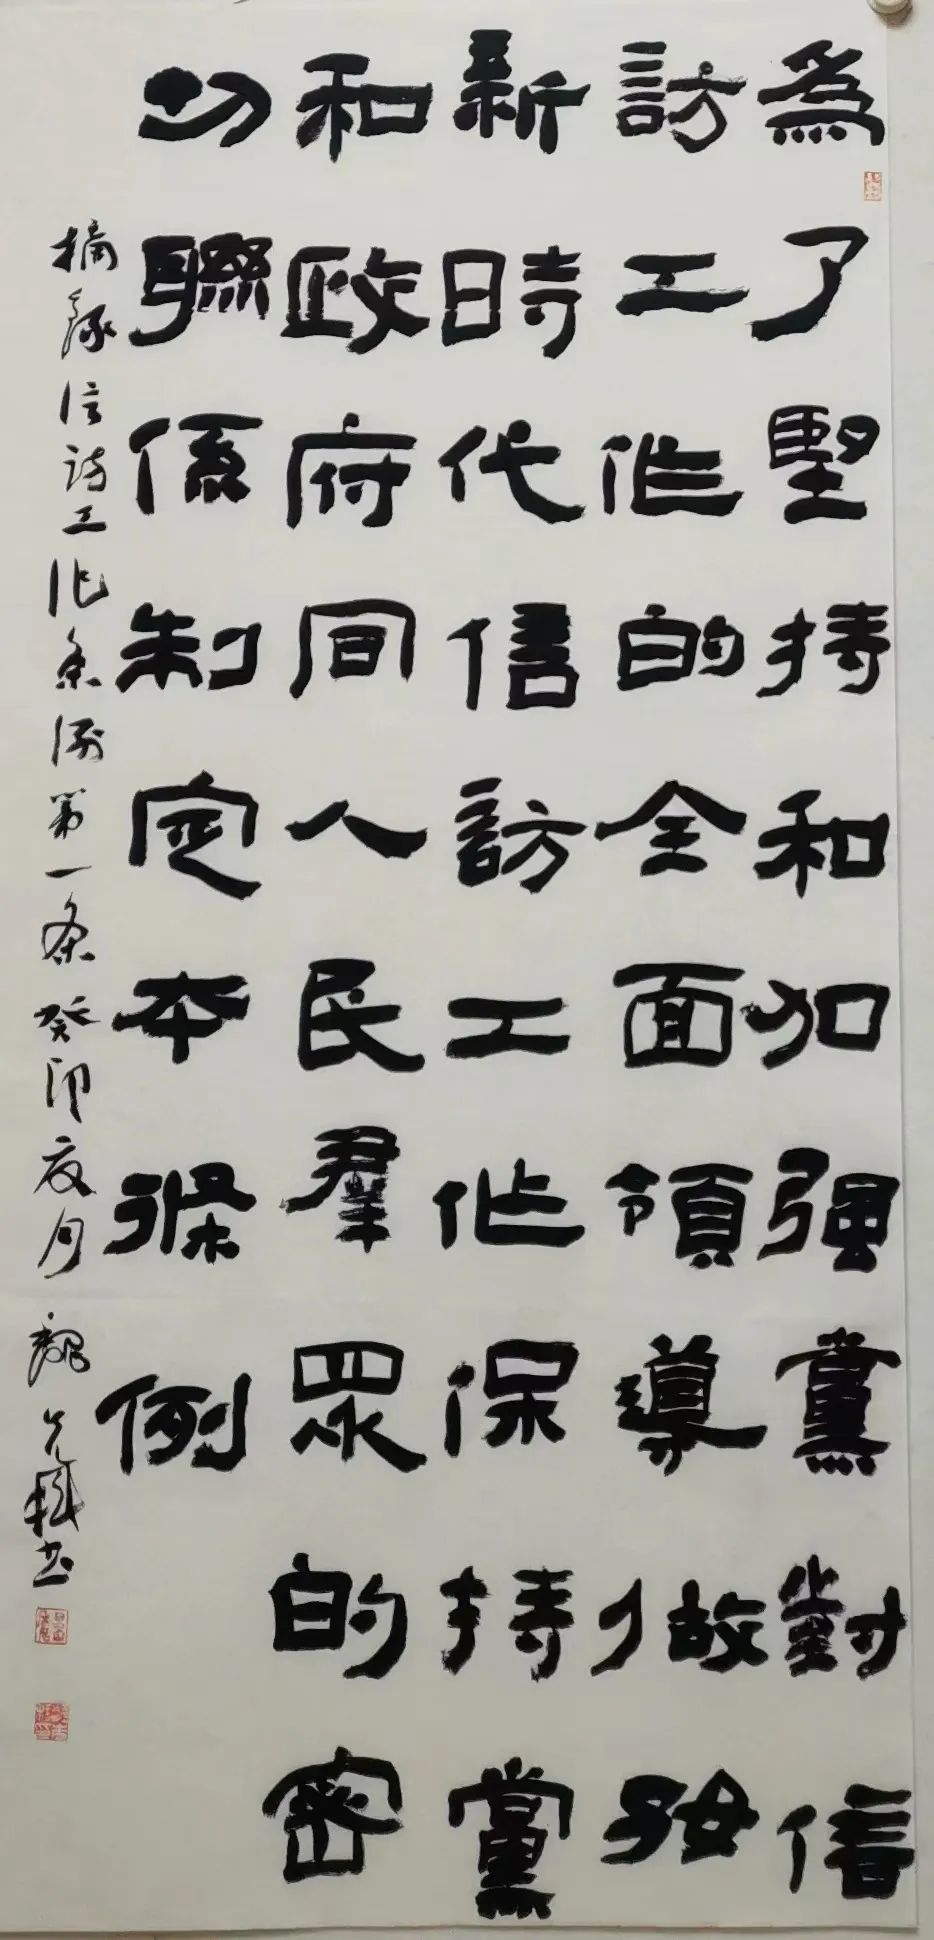 為了堅持和加强黨對信
訪工作的全面領導做好
新時代信訪工作保持黨
和政府同人民羣眾的密
切聯係制定本條例
摘錄信訪工作条例第一条癸卯夏月魏書